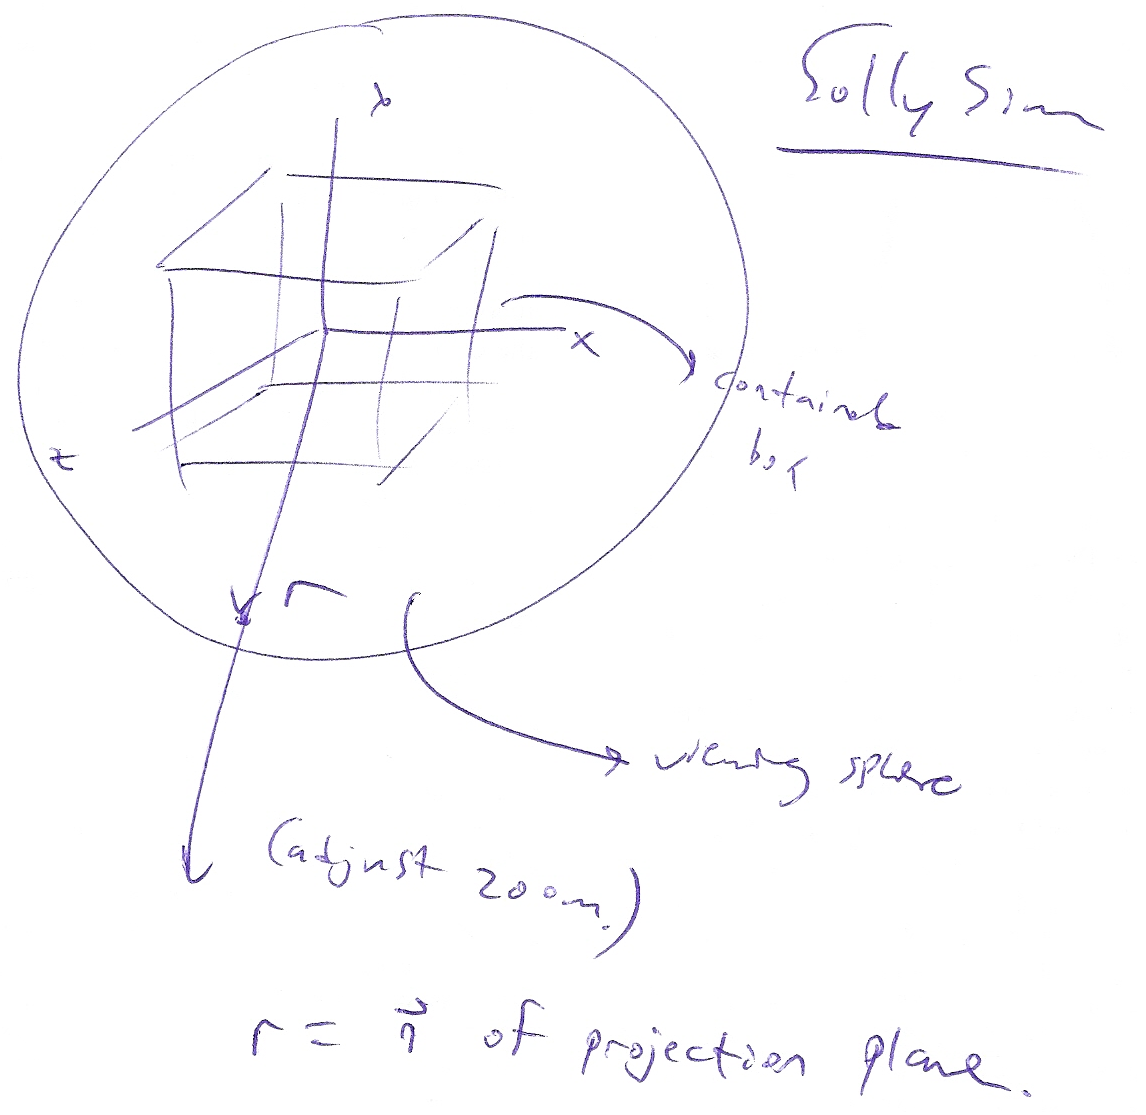 Solly Sim
y
x
z
container
box
r
viewing sphere
(adjust zoom.)
r = n⃗ of projection plane.